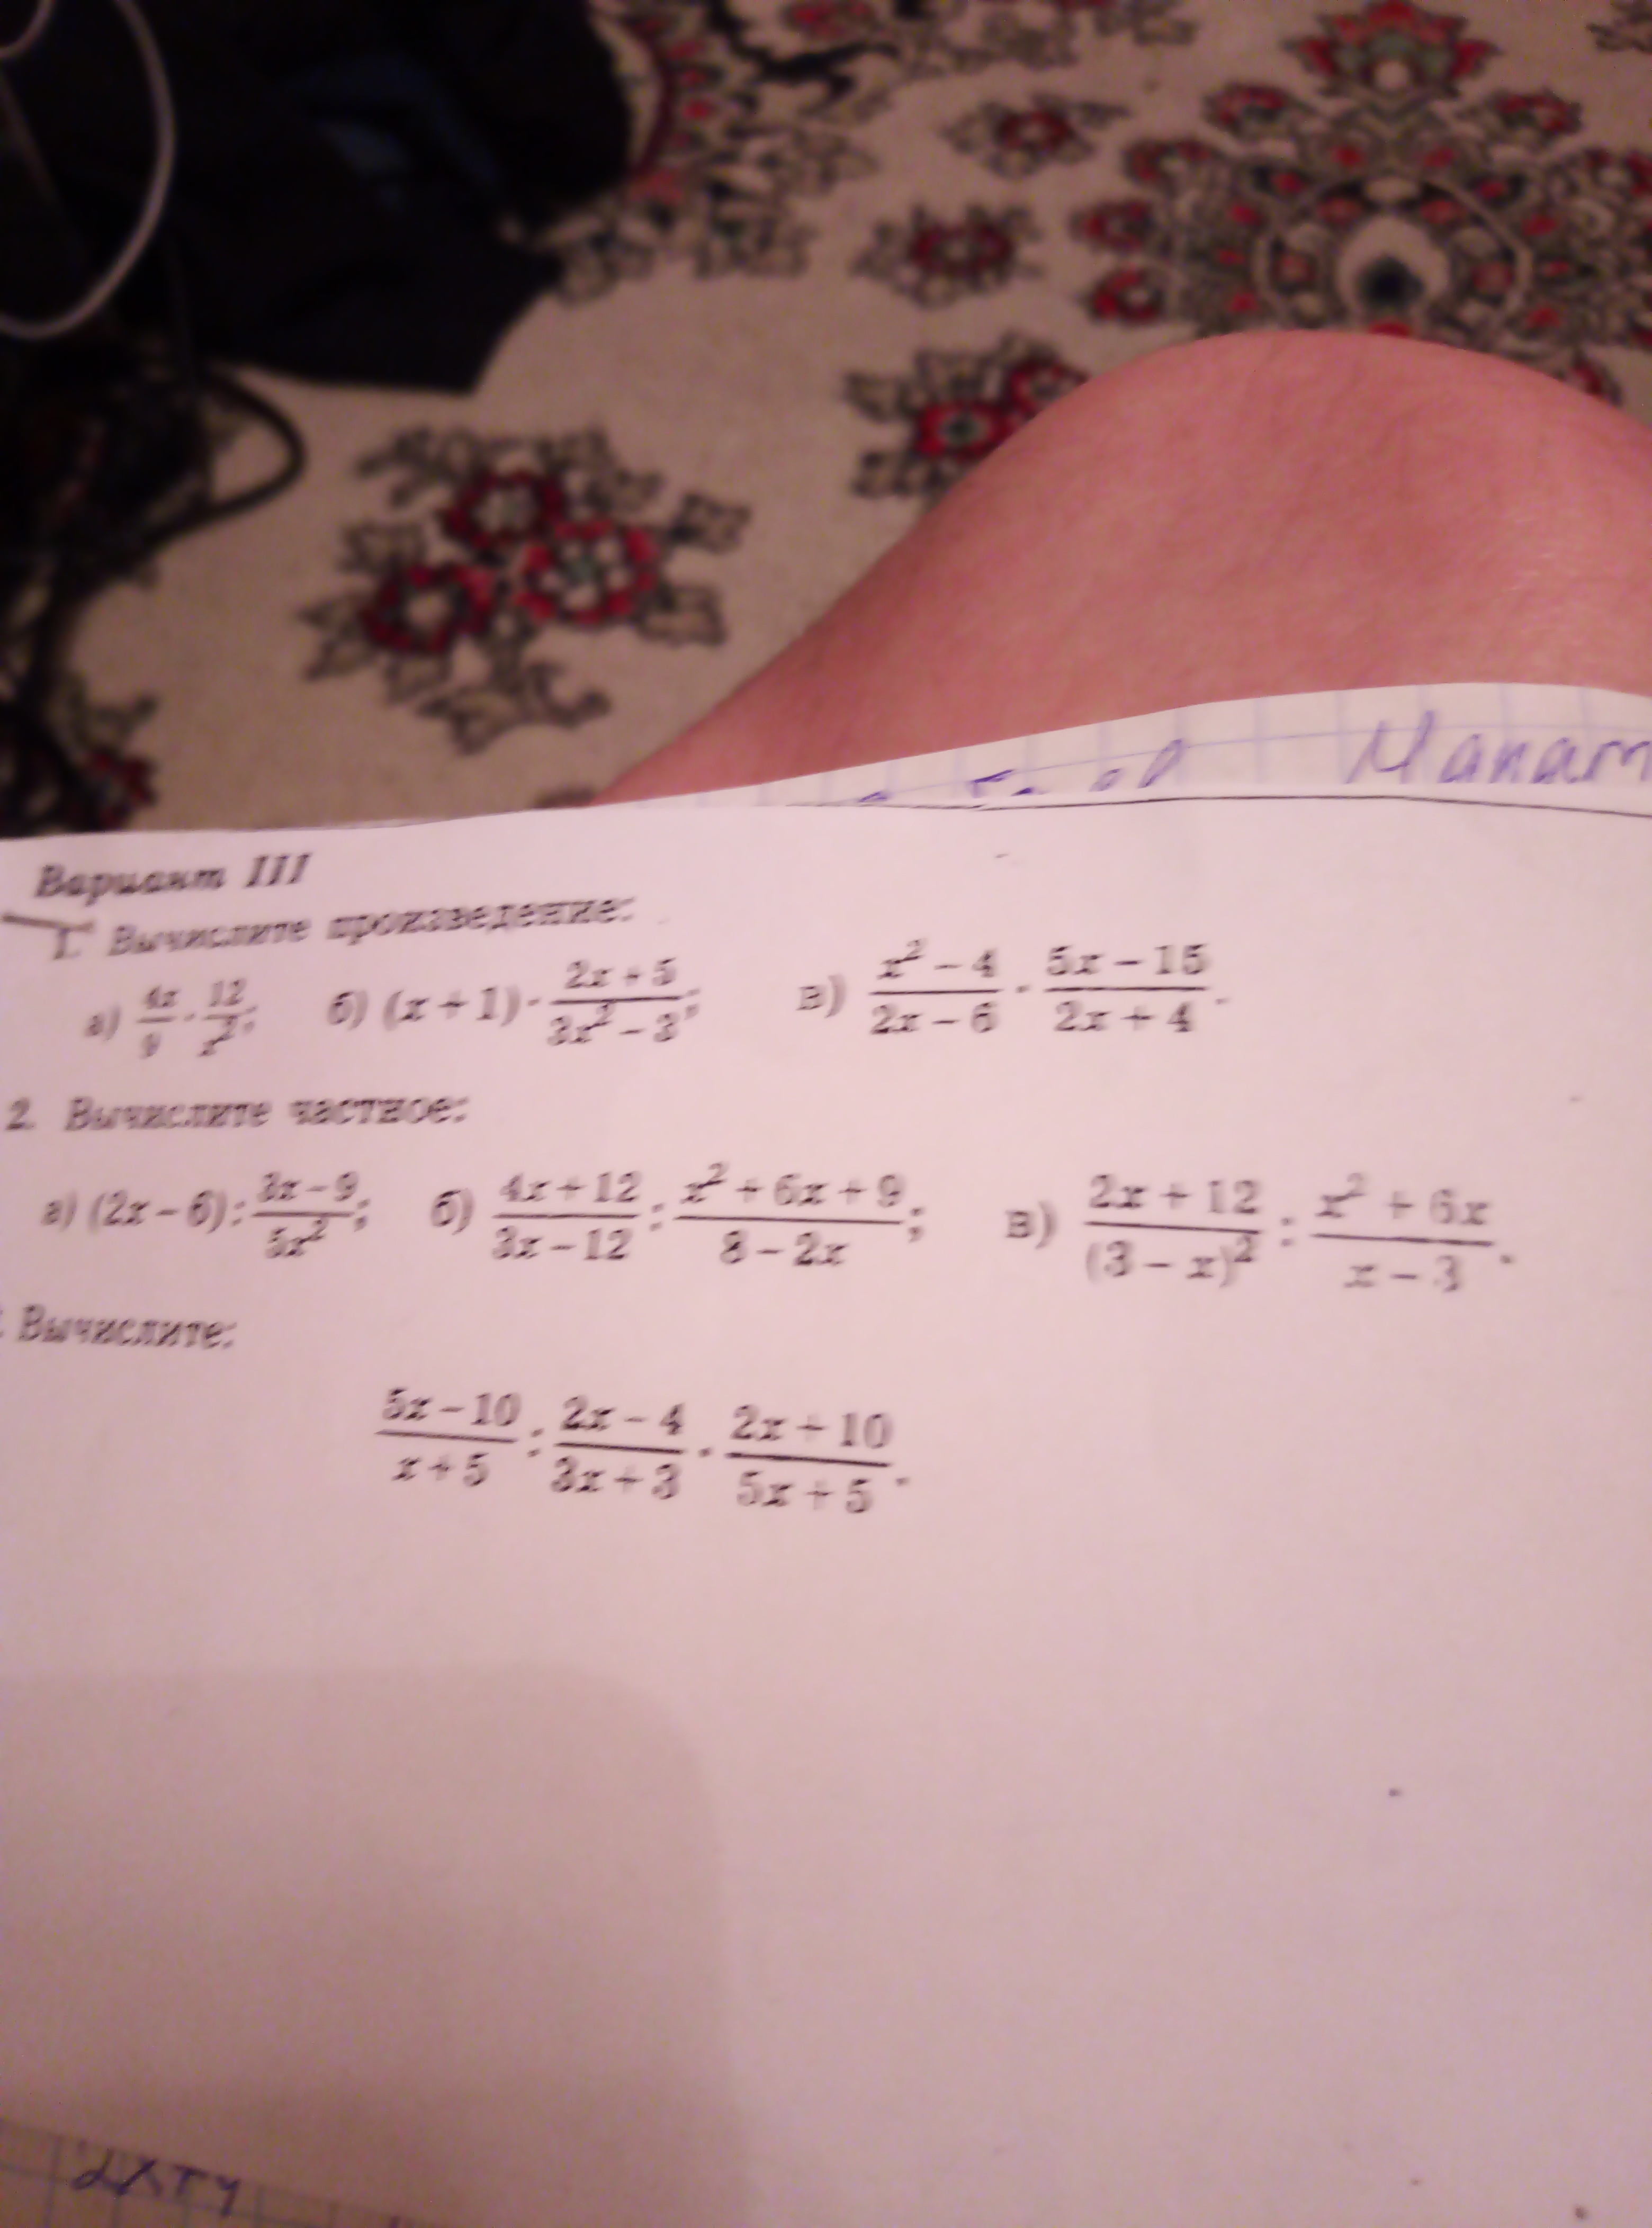 Манат
Вариант III
1. Вычислите произведение:
а) 4x/9 · 12/x²; б) (x + 1) · (2x + 5)/(3x² − 3); в) (x² − 4)/(2x − 6) · (5x − 15)/(2x + 4).
2. Вычислите частное:
а) (2x − 6) : (3x − 9)/(5x²); б) (4x + 12)/(3x − 12) : (x² + 6x + 9)/(8 − 2x); в) (2x + 12)/(3 − x)² : (x² + 6x)/(x − 3).
Вычислите:
(5x − 10)/(x + 5) : (2x − 4)/(3x + 3) · (2x + 10)/(5x + 5).